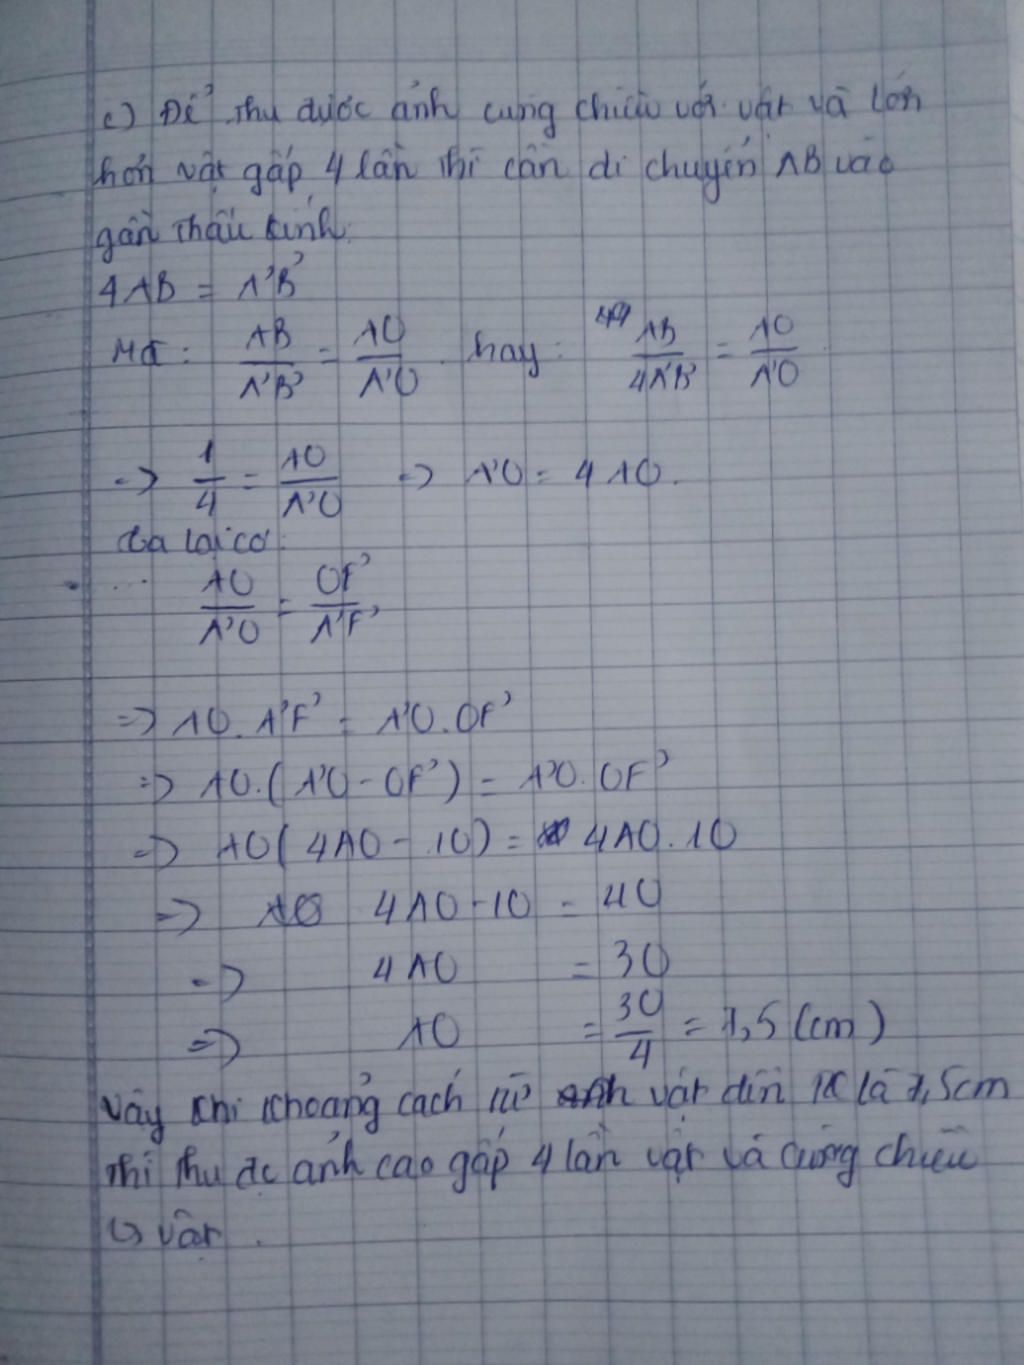 c) Để thu được ảnh cùng chiều với vật và lớn
hơn vật gấp 4 lần thì cần di chuyển AB vào
gần thấu kính.
4AB = A'B'
Mà: AB/A'B' = AO/A'O hay: AB/4A'B' = AO/A'O
=> 1/4 = AO/A'O => A'O = 4AO.
Ta lại có:
AO/A'O = OF'/A'F'
=> AO.A'F' = A'O.OF'
=> AO.(A'O - OF') = A'O.OF'
=> AO(4AO - 10) = 4AO.10
=> 4AO - 10 = 40
=> 4AO = 30
=> AO = 30/4 = 7,5 (cm)
Vậy khi khoảng cách từ vật đến TK là 7,5cm
thì thu đc ảnh cao gấp 4 lần vật và cùng chiều
vật.